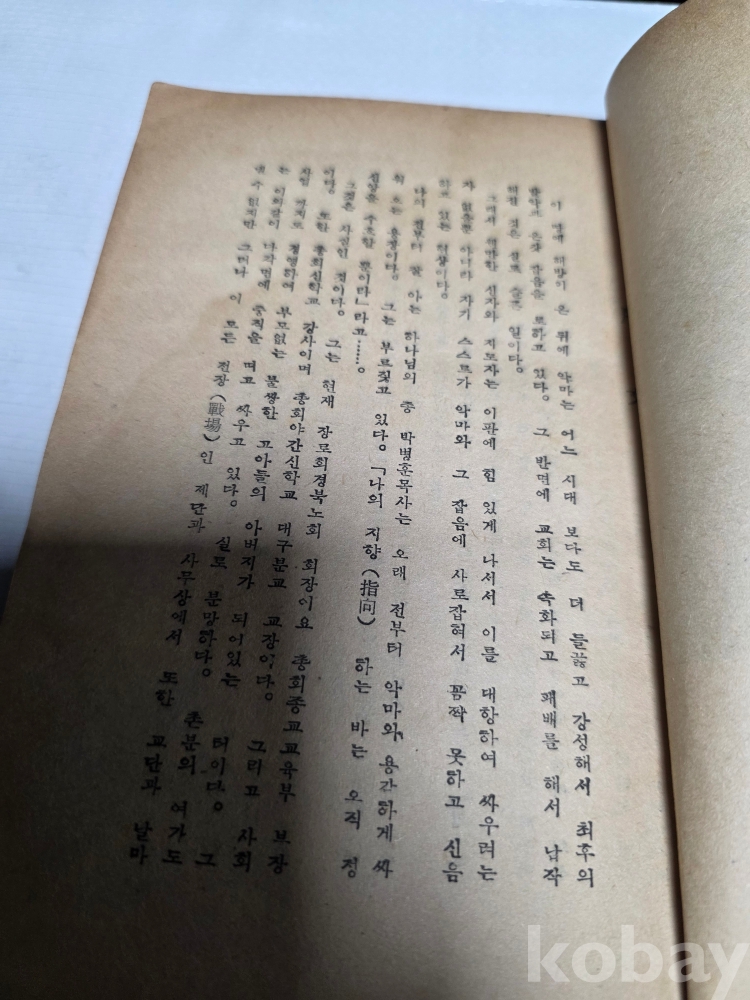 이 땅에 해방이 온 뒤에 악마는 어느 시대 보다도 더 들끓고 강성해서 최후의
발악과 온갖 잡음을 토하고 있다。 그 반면에 교회는 속화되고 패배를 해서 납작
해진 것은 실로 슬픈 일이다。
그래서 웬만한 신자와 지도자는 이판에 힘 있게 나서서 이를 대항하여 싸우려는
자 없을뿐 아니라 자기 스스로가 악마와 그 잡음에 사로잡혀서 꼼짝 못하고 신음
하고 있는 현상이다。
나의 전부터 잘 아는 하나님의 종 박병훈목사는 오래 전부터 악마와 용감하게 싸
워 오는 용장이다。 그는 부르짖고 있다。「나의 지향(指向) 하는 바는 오직 정
신앙을 수호할 뿐이다」라고……。
그것은 사실인 것이다。 그는 현재 장로회경북노회 회장이요 총회종교교육부 부장
이다。 또한 총회신학교 강사이며 총회야간신학교 대구분교 교장이다。 그리고 사회
사업 까지도 경영하여 부모없는 불쌍한 고아들의 아버지가 되어있는 터이다。 그
는 이와같이 다각면에 중직을 띠고 싸우고 있다。 실로 분망하다。 촌분의 여가도
낼수 없지만 그러나 이 모든 전장(戰場)인 제단과 사무상에서 또한 교단과 날마
kobay